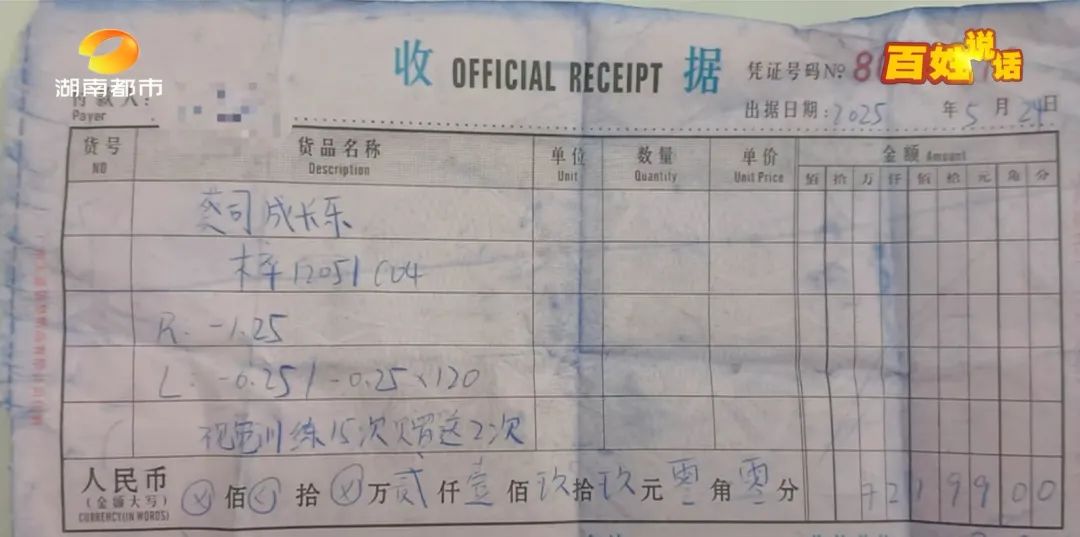 湖南都市
百姓说话
收 OFFICIAL RECEIPT 据
凭证号码 No. 8
付款人：
Payer
出据日期：2025 年 5 月 24 日
货号 货品名称 单位 数量 单价 金额 Amount
NO Description Unit Quantity Unit Price 佰 拾 万 仟 佰 拾 元 角 分
蔡司成长乐
木卒 12051 C04
R. -1.25
L. -0.25 / -0.25×120
视觉训练15次 赠送2次
人民币 ⊗ 佰 ⊗ 拾 ⊗ 万 贰 仟 壹 佰 玖 拾 玖 元 零 角 零 分 ¥219900
（金额大写）
CURRENCY(IN WORDS)